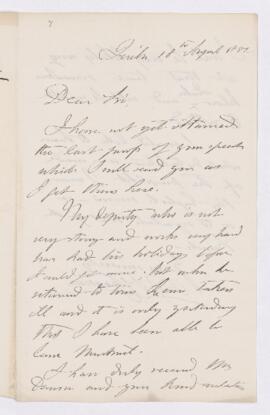 18th August 1887.
Dear Sir
I have not yet obtained
the last proofs of your speech
which I will send you as
I get them here.
My deputy who is not
very strong and works very hard
has had his holidays before
I could get mine. But when he
returned to town he was taken
ill and it is only yesterday
that I have been able to
leave
I have duly received Mr
and your kind